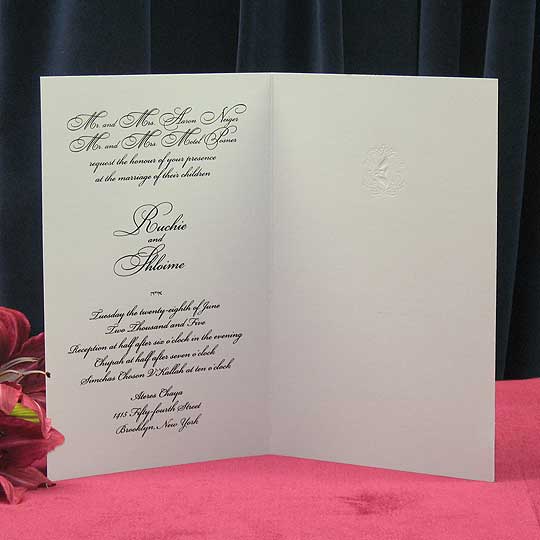 Mr. and Mrs. Aaron Neiger
Mr. and Mrs. Motel Posner
request the honour of your presence
at the marriage of their children
Ruchie
and
Shloime
אי״ה
Tuesday the twenty-eighth of June
Two Thousand and Five
Reception at half after six o'clock in the evening
Chupah at half after seven o'clock
Simchas Choson V'Kallah at ten o'clock
Ateres Chaya
1415 Fifty-fourth Street
Brooklyn, New York